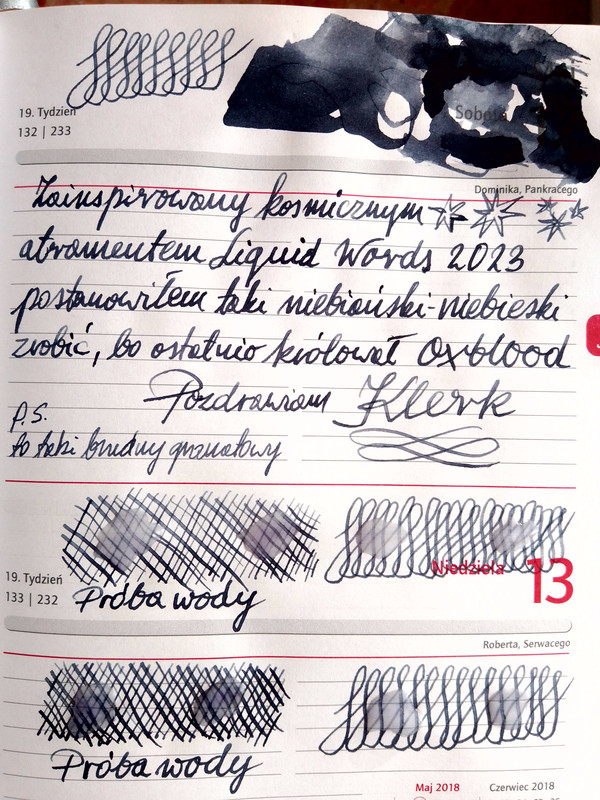 19. Tydzień
132 | 233
Sobota
Dominika, Pankracego
Zainspirowany kosmicznym
atramentem Liquid Words 2023
postanowiłem taki niebiański-niebieski
zrobić, bo ostatnio królował Oxblood
Pozdrawiam Klerk
P.S.
to taki brudny granatowy
Niedziela 13
19. Tydzień
133 | 232
Próba wody
Roberta, Serwacego
Próba wody
Maj 2018 Czerwiec 2018